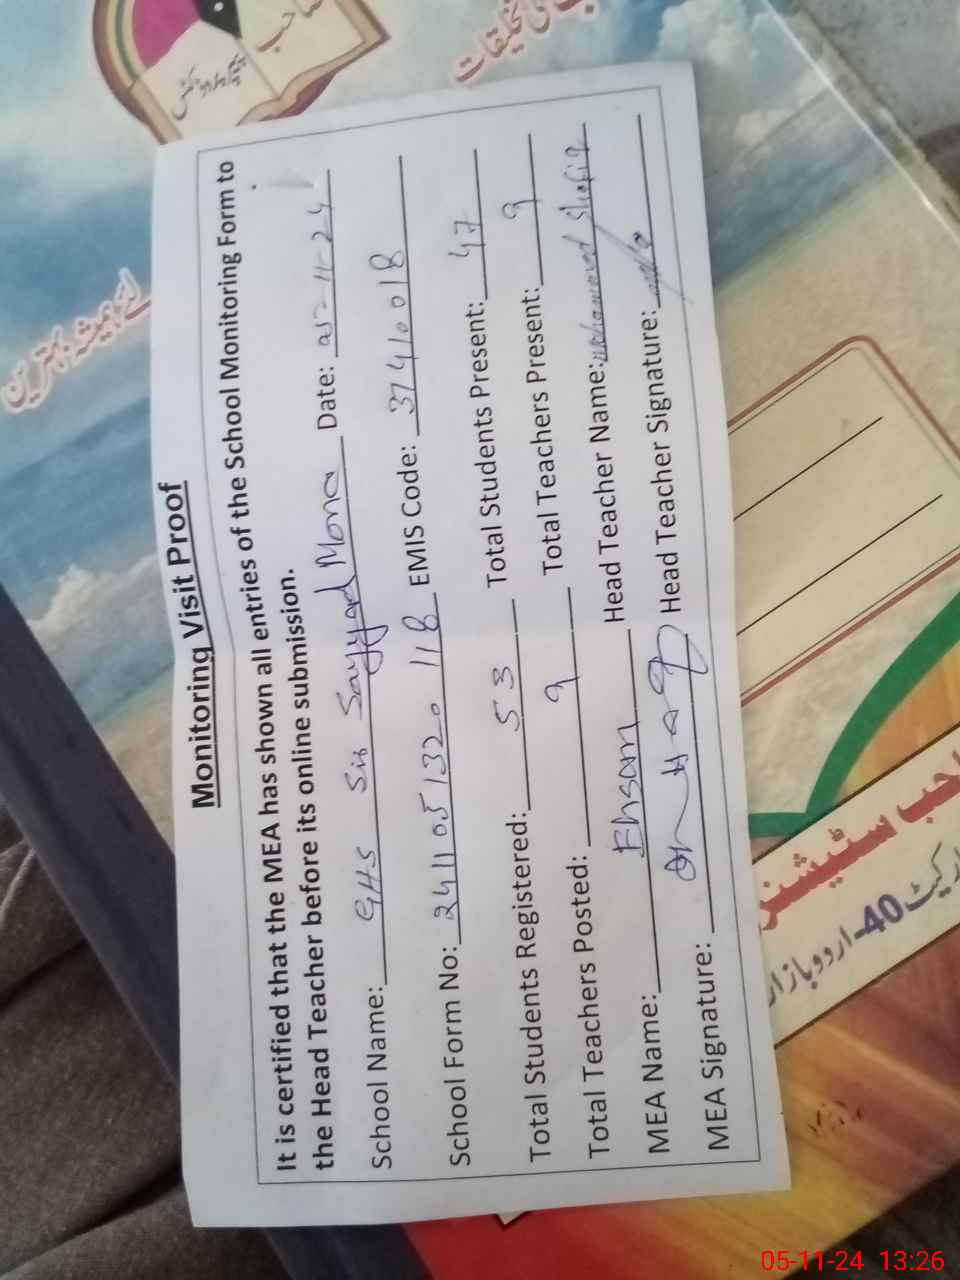 صاحب
تخلیقات
لئے ہمیشہ بہترین
Monitoring Visit Proof
It is certified that the MEA has shown all entries of the School Monitoring Form to
the Head Teacher before its online submission.
School Name: GHS Sayyad Mona Date: 05-11-24
School Form No: 2411051320 118 EMIS Code: 37410018
Total Students Registered: 53 Total Students Present: 47
Total Teachers Posted: 9 Total Teachers Present: 9
MEA Name: Ehsan Head Teacher Name: Mohammad Shafiq
MEA Signature: Head Teacher Signature:
احب سٹیشنر
ارکیٹ 40-اردو بازار
05-11-24 13:26